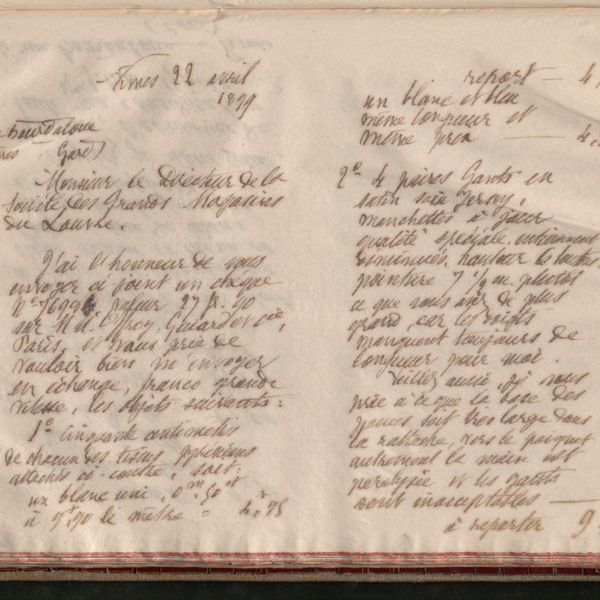 Nimes 22 avril
1899
Gard)
Monsieur le Directeur de la
Société des Grands Magasins
du Louvre.
J'ai l'honneur de vous
envoyer ci joint un chèque
valeur 27 f. 90
sur
Paris, et vous prie de
vouloir bien m'envoyer
en échange, franco grande
vitesse, les objets suivants:
1º Cinquante centimètres
de chacun des tissus pyrénéens
attachés ci-contre, soit:
un blanc uni, 0m,50 et
à 9f.90 le mètre = 4f,95
report — 4,
un blanc et bleu
même longueur et
même prix — 4,
2º 4 paires Gants en
satin soie Jersey,
manchettes à jour
qualité spéciale, entièrement
diminués, hauteur
pointure 7 1/2 ou plutôt
ce que vous avez de plus
grand, car les doigts
manquent toujours de
longueur pour moi.
Veillez aussi, je vous
prie à ce que la base des
pouces soit très large dans
la, vers le poignet
autrement la main est
paralysée et les gants
sont inacceptables —
à reporter 9